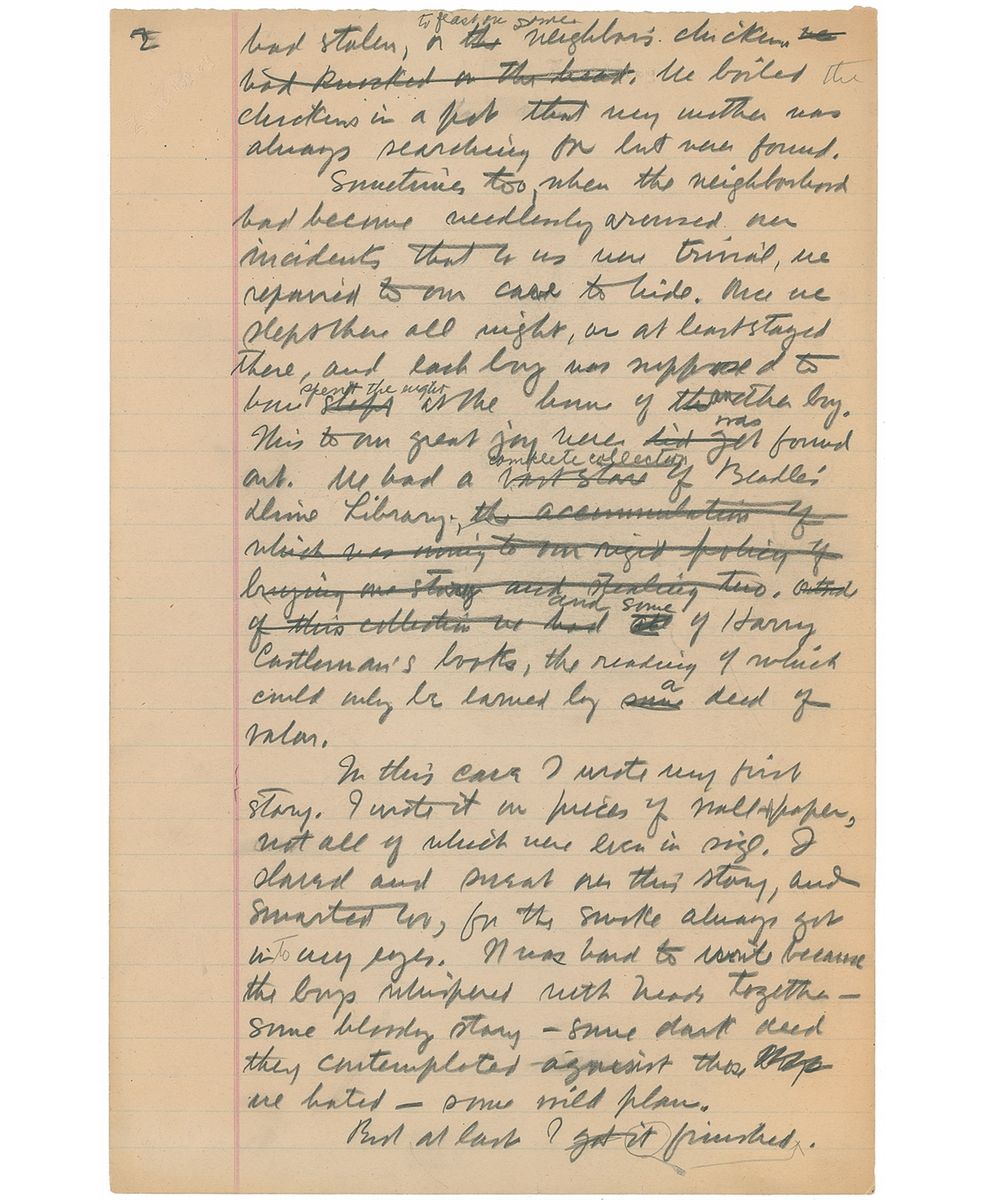 2
to feast on some
had stolen, or the neighbor's chickens we
had knocked on the head. We boiled the
chickens in a pot that my mother was
always searching for but never found.
Sometimes too, when the neighborhood
had become needlessly aroused over
incidents that to us were trivial, we
repaired to our cave to hide. Once we
slept there all night, or at least stayed
there, and each boy was supposed to
spent the night
have slept at the home of the another boy.
was
This to our great joy never did get found
complete collection
out. We had a vast store of Beadle's
Dime Library, the accumulation of
which was owing to our rigid policy of
buying one story and stealing two. Outside
and some
of this collection we had all of Harry
Castlemon's books, the reading of which
a
could only be earned by some deed of
valor.
In this cave I wrote my first
story. I wrote it on pieces of wall paper,
not all of which were even in size. I
slaved and sweat over this story, and
smarted too, for the smoke always got
into my eyes. It was hard to write because
the boys whispered with heads together —
some bloody story — some dark deed
they contemplated against those
we hated — some wild plan.
But at last I got it finished.